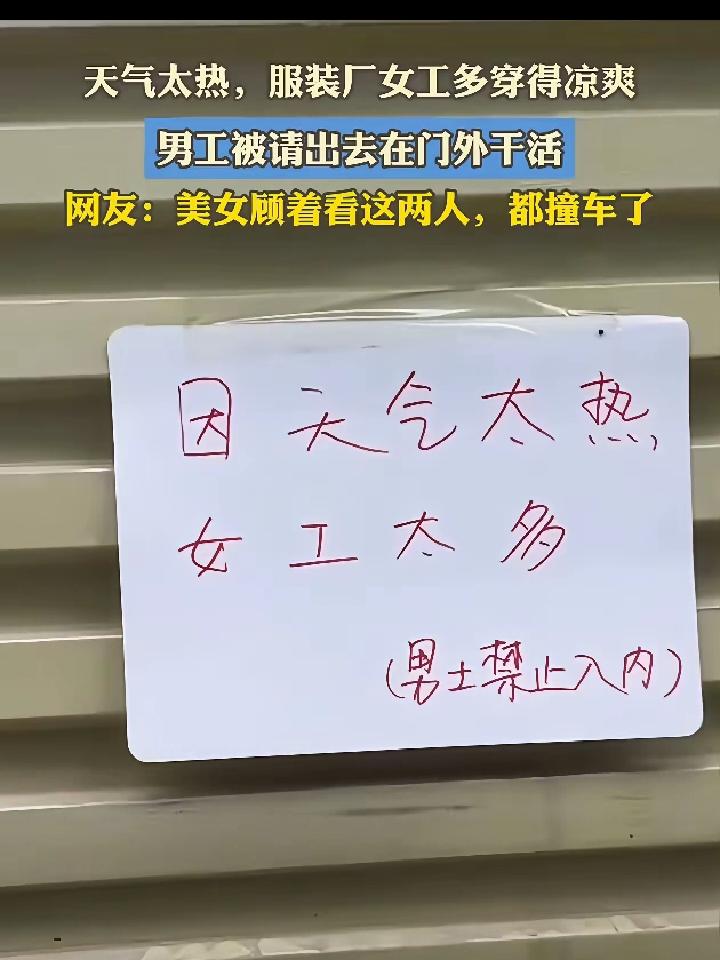 天气太热，服装厂女工多穿得凉爽
男工被请出去在门外干活
网友：美女顾着看这两人，都撞车了
因天气太热
女工太多
（男士禁止入内）